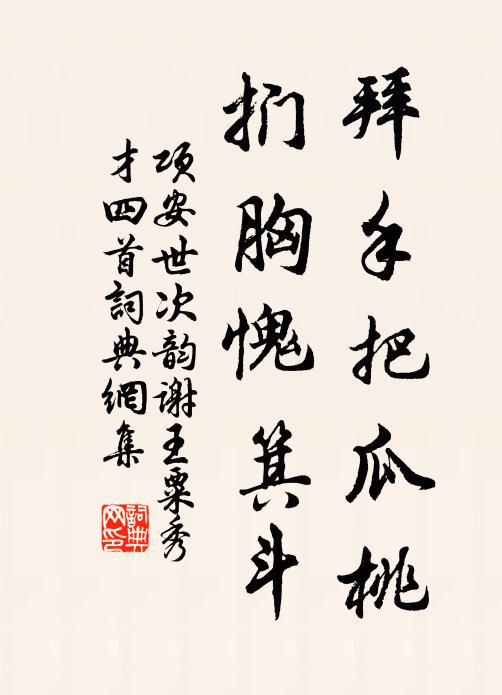 拜手把瓜桃
捫胸愧箕斗
項安世次韵謝王粟秀
才四首詞典網集
詞典網印